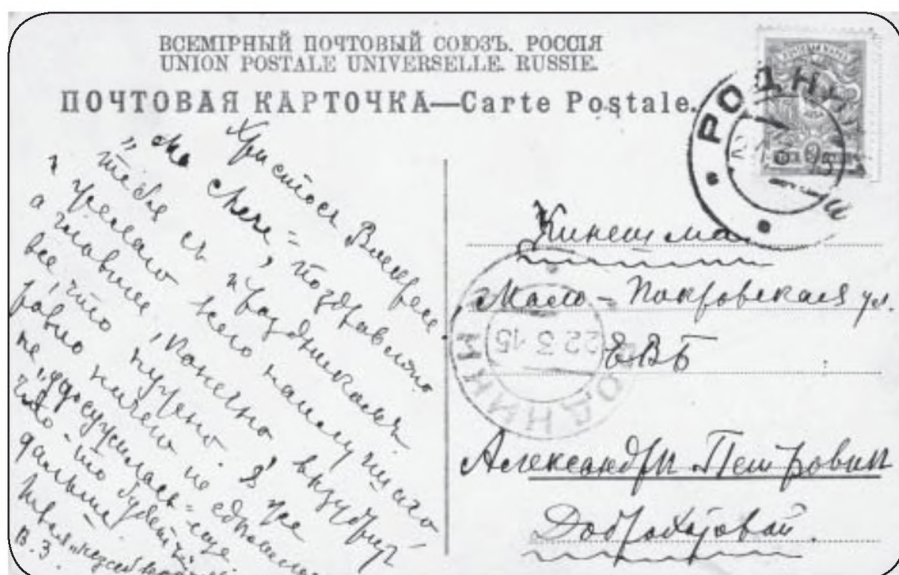 ВСЕМІРНЫЙ ПОЧТОВЫЙ СОЮЗЪ. РОССІЯ
UNION POSTALE UNIVERSELLE. RUSSIE.
ПОЧТОВАЯ КАРТОЧКА—Carte Postale.
Христосъ Воскресе
"Ma chere", поздравляю
тебя съ праздникомъ
и желаю всего наилучшаго,
а главное, конечно,
все, что нужно. Я
равно ничего не
не "удосужилась" еще.
что-то будетъ
дальше.
В. З.
РОДНИ
Кинешма
Мало-Покровская ул.
ЕВБ
Александрѣ Петровнѣ
Доброхотовой.
РОДНИКИ
22 3 15